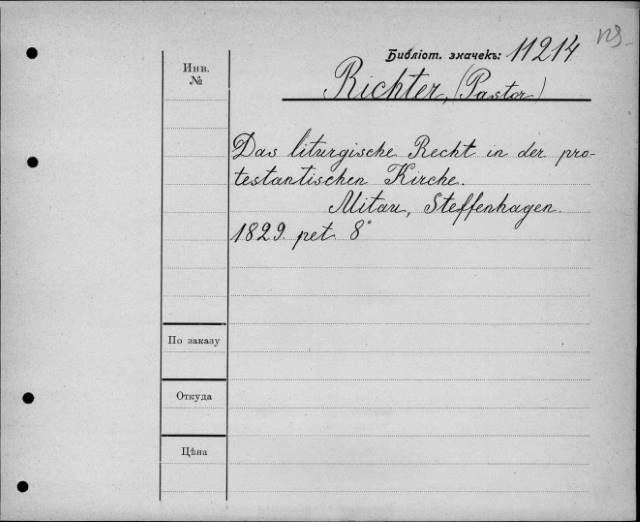 Библіот. значекъ: 11214
Инв.
№
Richter, (Pastor)
Das liturgische Recht in der pro-
testantischen Kirche.
Mitau, Steffenhagen.
1829. pet. 8°
По заказу
Откуда
Цѣна